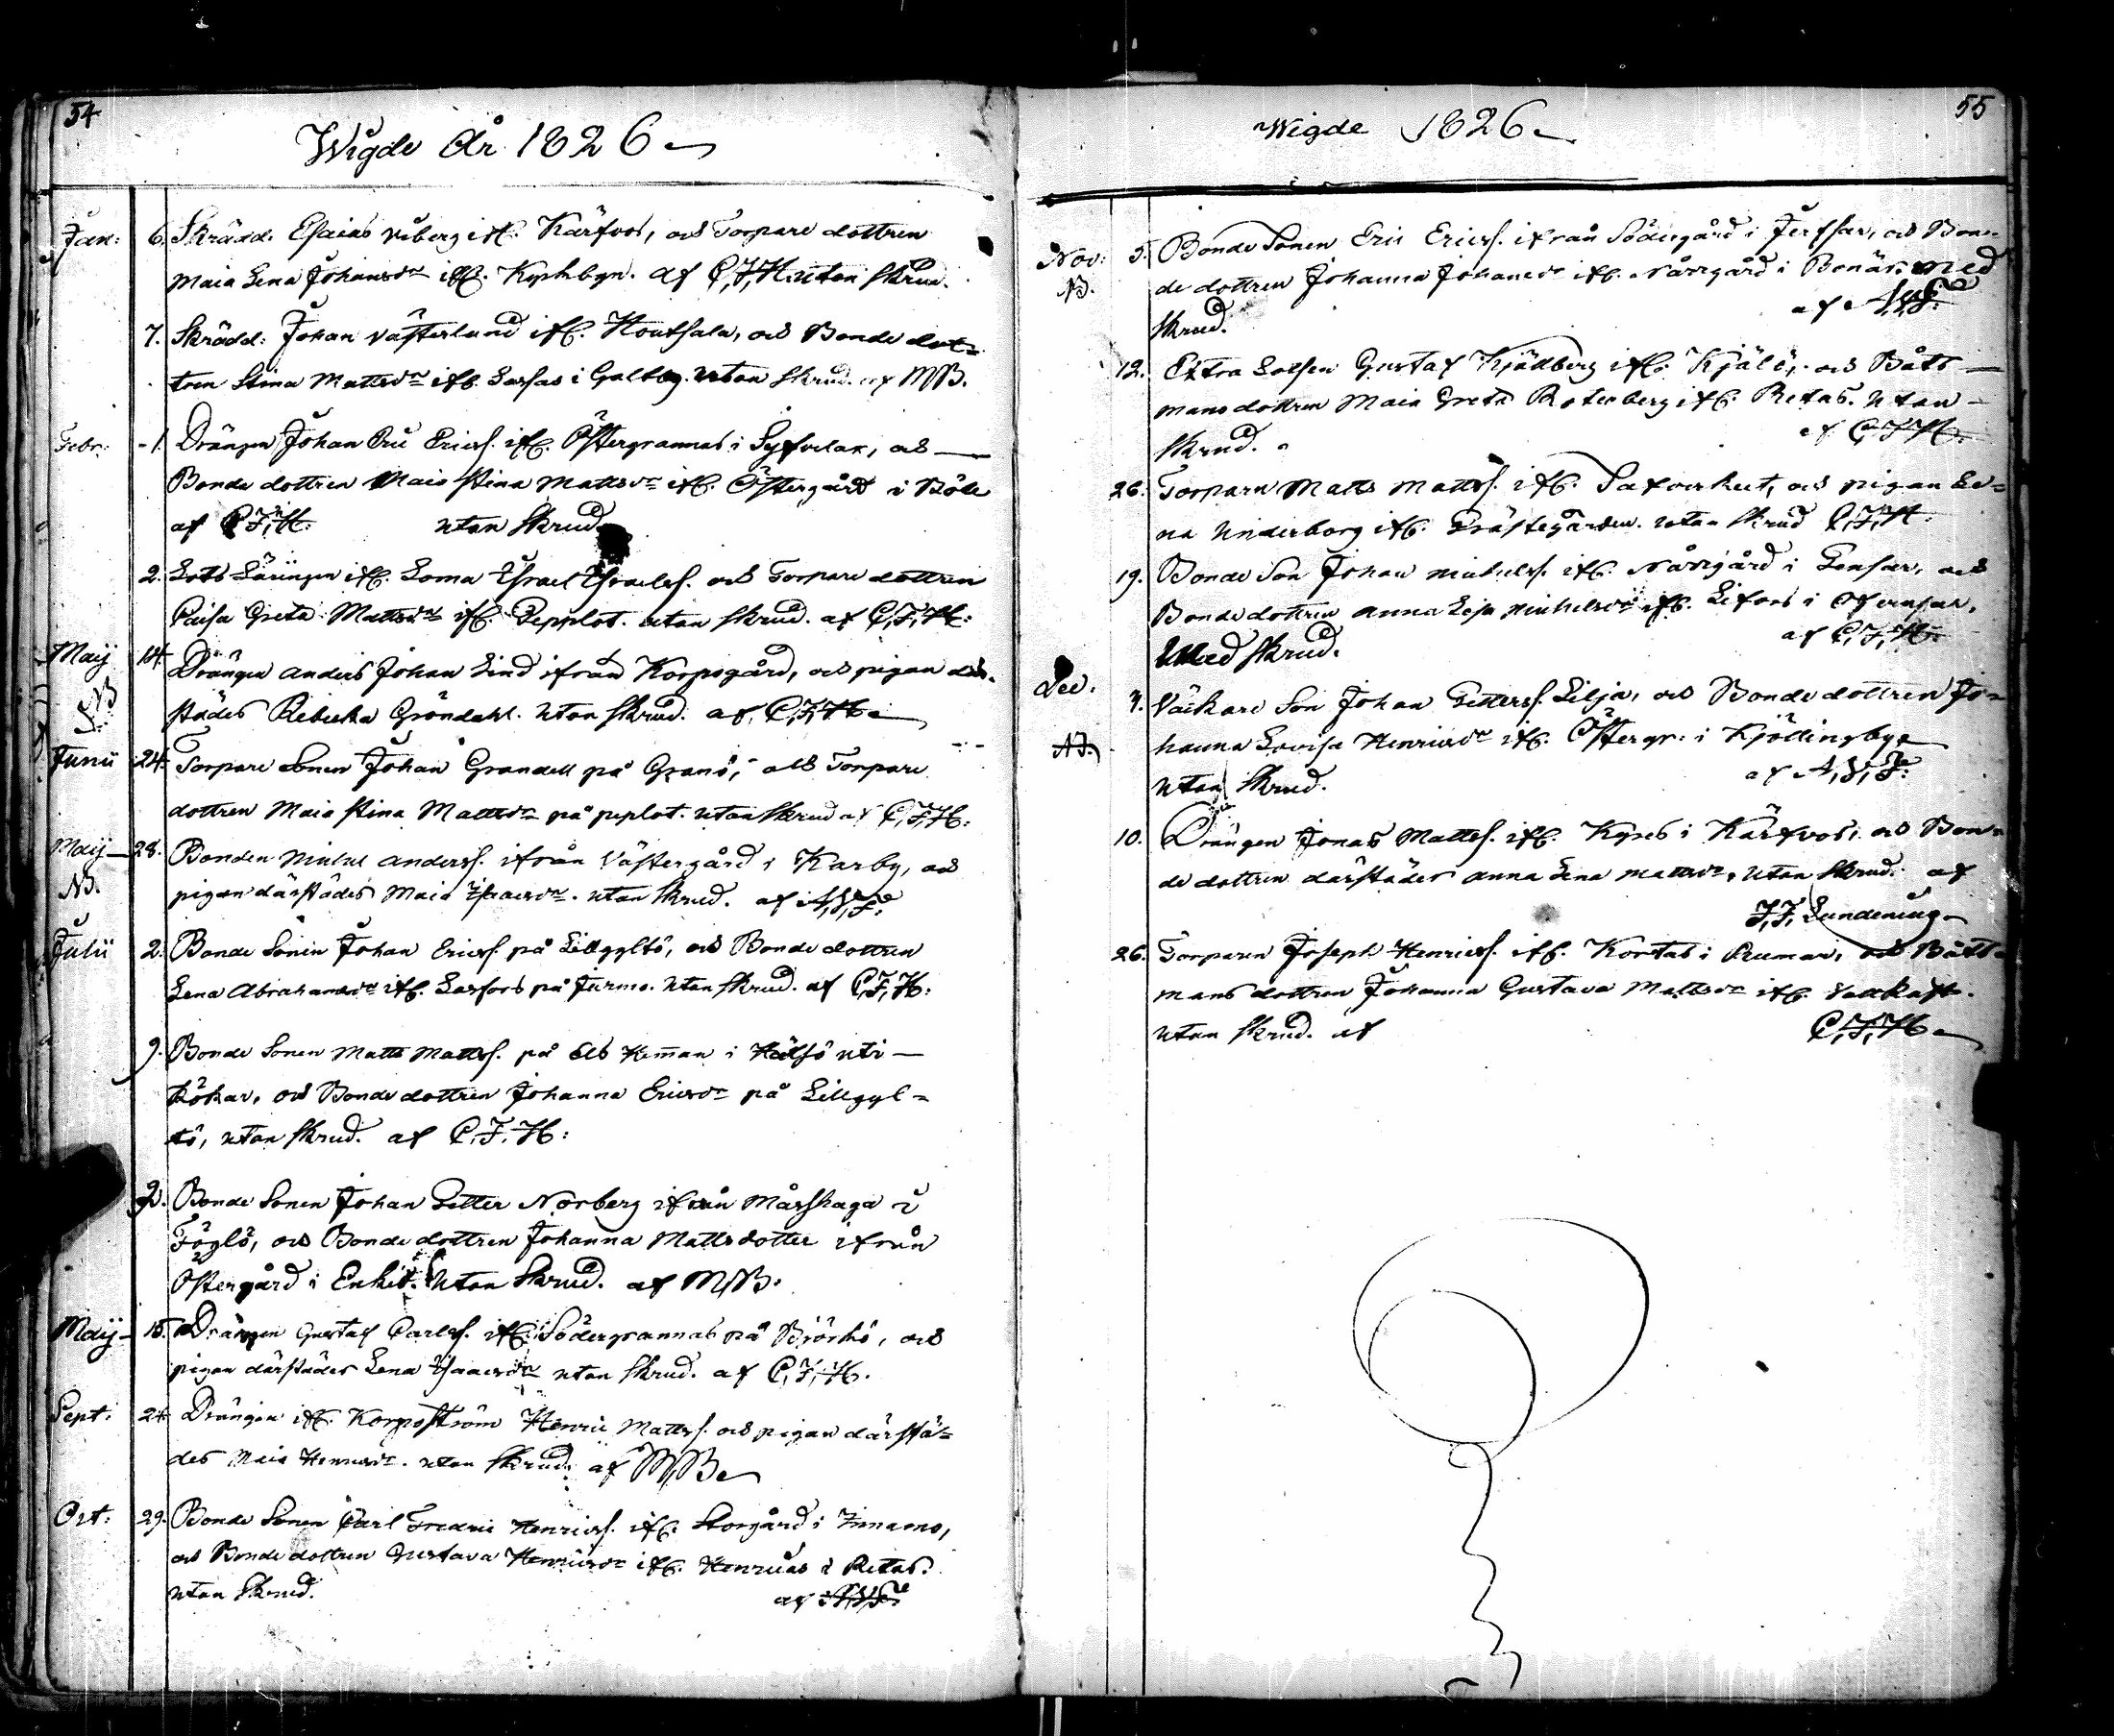 54
Wigde År 1826
Jan: 6. Skrädd. Esaias Wiberg ifr. Kärfvos, och Torpare dottren
Maia Lena Johansdr ifr. Kyrkbyn. af C,F,H. utan skrud.
7. Skrädd: Johan Västerlund ifr. Houtsala, och Bonde dot=
tren Stina Mattsdr ifr. Lassas i Galtby. utan skrud. af MB.
Febr: 1. Drängen Johan Eric Ericss. ifr. Östergrannas i Syfvelax, och
Bonde dottren Maia Stina Mattsdr ifr. Östergård i Böle
af C,F,H. utan skrud.
2. Lots Läringen ifr. Loma Israel Israelss. och Torpare dottren
Caisa Greta Mattsdr ifr. Pepplot. utan skrud. af C,F,H:
Maij 14. Drängen Anders Johan Lind ifrån Korpogård, och pigan där=
städes Rebecka Gröndahl. utan skrud. af C,F,H.
Junii 24. Torpare Sonen Johan Grandell på Granö, och Torpare
dottren Maia Stina Mattsdr på peplot. utan skrud af C,F,H:
Maij 28. Bonden Michel Anderss. ifrån Västergård i Karby, och
NB.
pigan därstädes Maia Isaacsdr. utan skrud. af
Julii 2. Bonde Sonen Johan Ericss. på Lillgyltö, och Bonde dottren
Lena Abrahamsdr ifr. Larsors på Jurmo. utan skrud. af C,F,H:
9. Bonde Sonen Matts Mattss. på Hemman i Hälsö uti
Kökar, och Bonde dottren Johanna Ericsdr på Lillgyl=
tö, utan skrud. af C.F.H:
9. Bonde Sonen Johan Petter Norberg ifrån Mårskaga i
Föglö, och Bonde dottren Johanna Mattsdotter ifrån
Östergård i Enkis. utan skrud. af MB.
Maij 15. Drängen Gustaf Carlss. ifr. Södergrannas på Björkö, och
pigan därstädes Lena Isaacsdr utan skrud. af C,F,H.
Sept: 24. Drängen ifr. Korpoström Henric Mattss. och pigan därstä=
des Maia Henricsdr. utan skrud. af MB
Oct: 29. Bonde Sonen Carl Fredric Henricss. ifr. Storgård i
och Bonde dottren Gustava Henricsdr ifr. Henricas i Retas.
utan Skrud. af
55
Wigde 1826
Nov: 5. Bonde Sonen Eric Ericss. ifrån Södergård i Jerfsar, och Bon=
NB.
de dottren Johanna Johansdr ifr. Norrgård i Bonäs. med
skrud. af
12. Extra Lotsen Gustaf Kjädberg ifr. Kjälö, och Båts
mans dottren Maia Greta Rotenberg ifr. Retas. utan
skrud. af C.F.H.
26. Torparn Matts Mattss. ifr. och pigan Le=
na Underborg ifr. Prästegården. utan skrud C,F,H.
19. Bonde Son Johan Michelss. ifr. Norrgård i Gensar, och
Bonde dottren Anna Lisa Michelsdr ifr. Lifors i Ofvensar,
Med skrud. af C,F,H:
Dec. 7. Väckare Son Johan Petterss. Lilja, och Bonde dottren Jo=
hanna Lovisa Henricsdr ifr. Östergr: i Kjöttingby
utan skrud. af
10. Drängen Jonas Mattss. ifr. Kyres i Kärfvos, och Bon=
de dottren därstädes Anna Lena Mattsdr, utan skrud. af
J,F, Lundenius
26. Torparen Joseph Henricss. ifr. Kortas i Rumar, och Båts=
mans dottren Johanna Gustava Mattsdr ifr. Vattkast.
utan skrud. af C,F,H